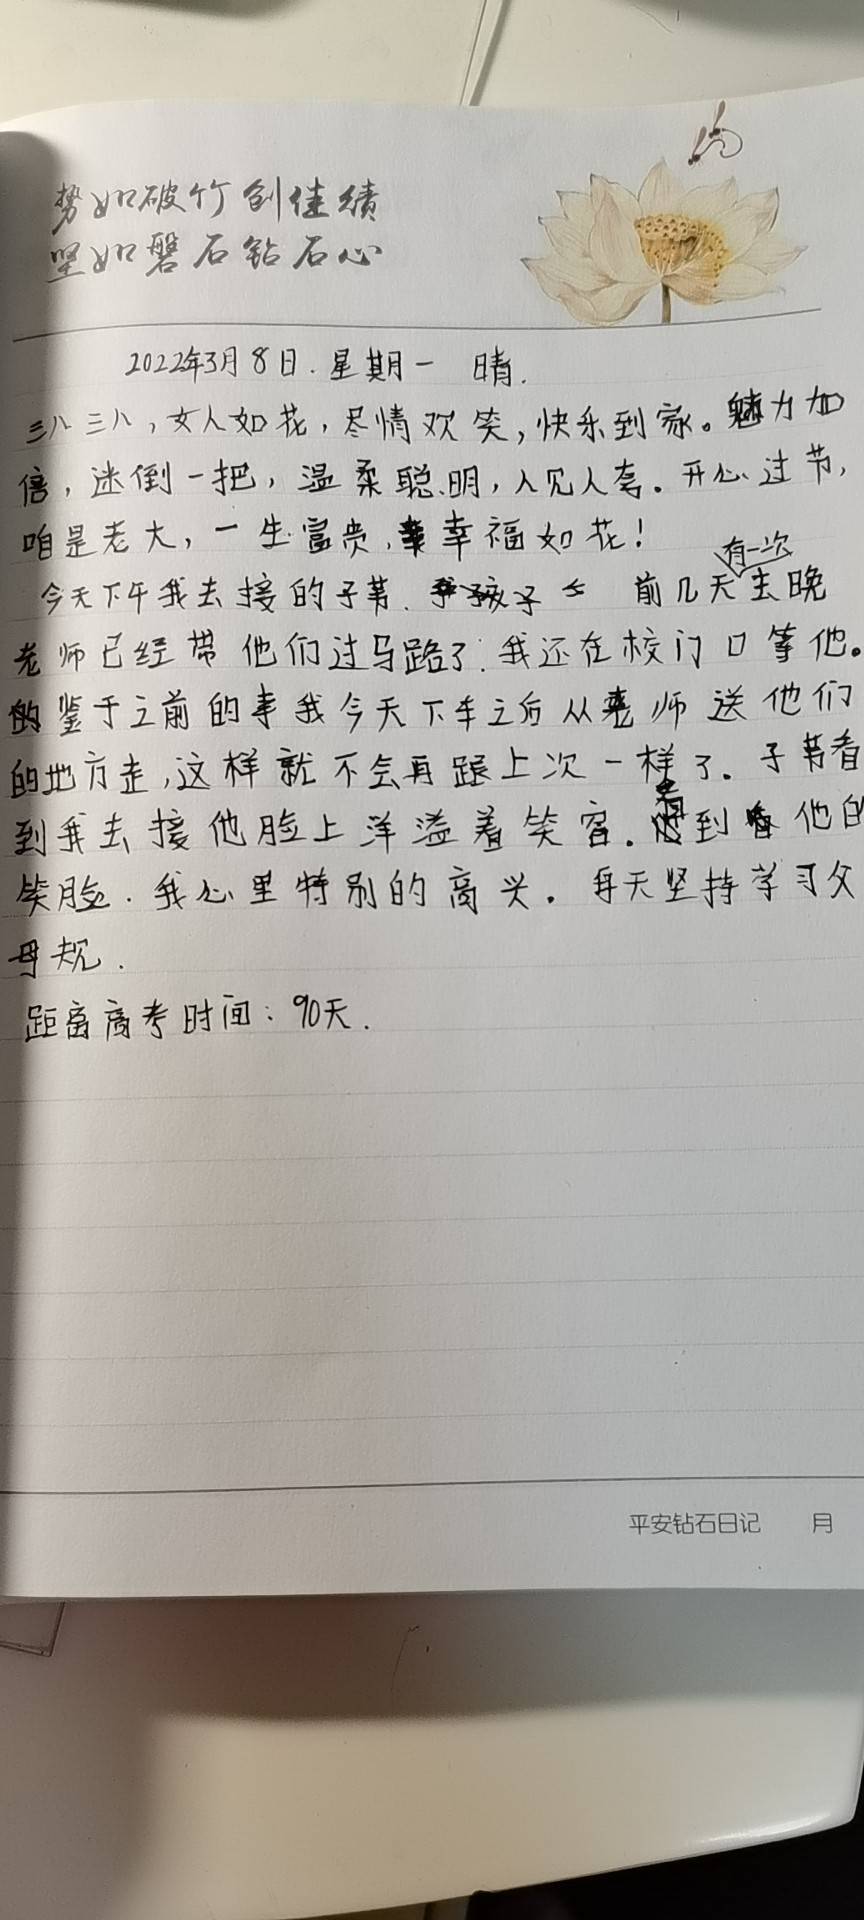 势如破竹创佳绩
坚如磐石钻石心
2022年3月8日.星期一 晴.
三八三八,女人如花,尽情欢笑,快乐到家。魅力加
倍,迷倒一把,温柔聪明,人见人夸。开心过节,
咱是老大,一生富贵,幸福如花!
有一次
今天下午我去接的子苒. 孩子 前几天去晚
老师已经带他们过马路了.我还在校门口等他。
鉴于之前的事我今天下车之后从老师送他们
的地方走,这样就不会再跟上次一样了.子苒看
到我去接他脸上洋溢着笑容.看到他的
笑脸.我心里特别的高兴。每天坚持学习父
母规.
距离高考时间:90天.
平安钻石日记 月